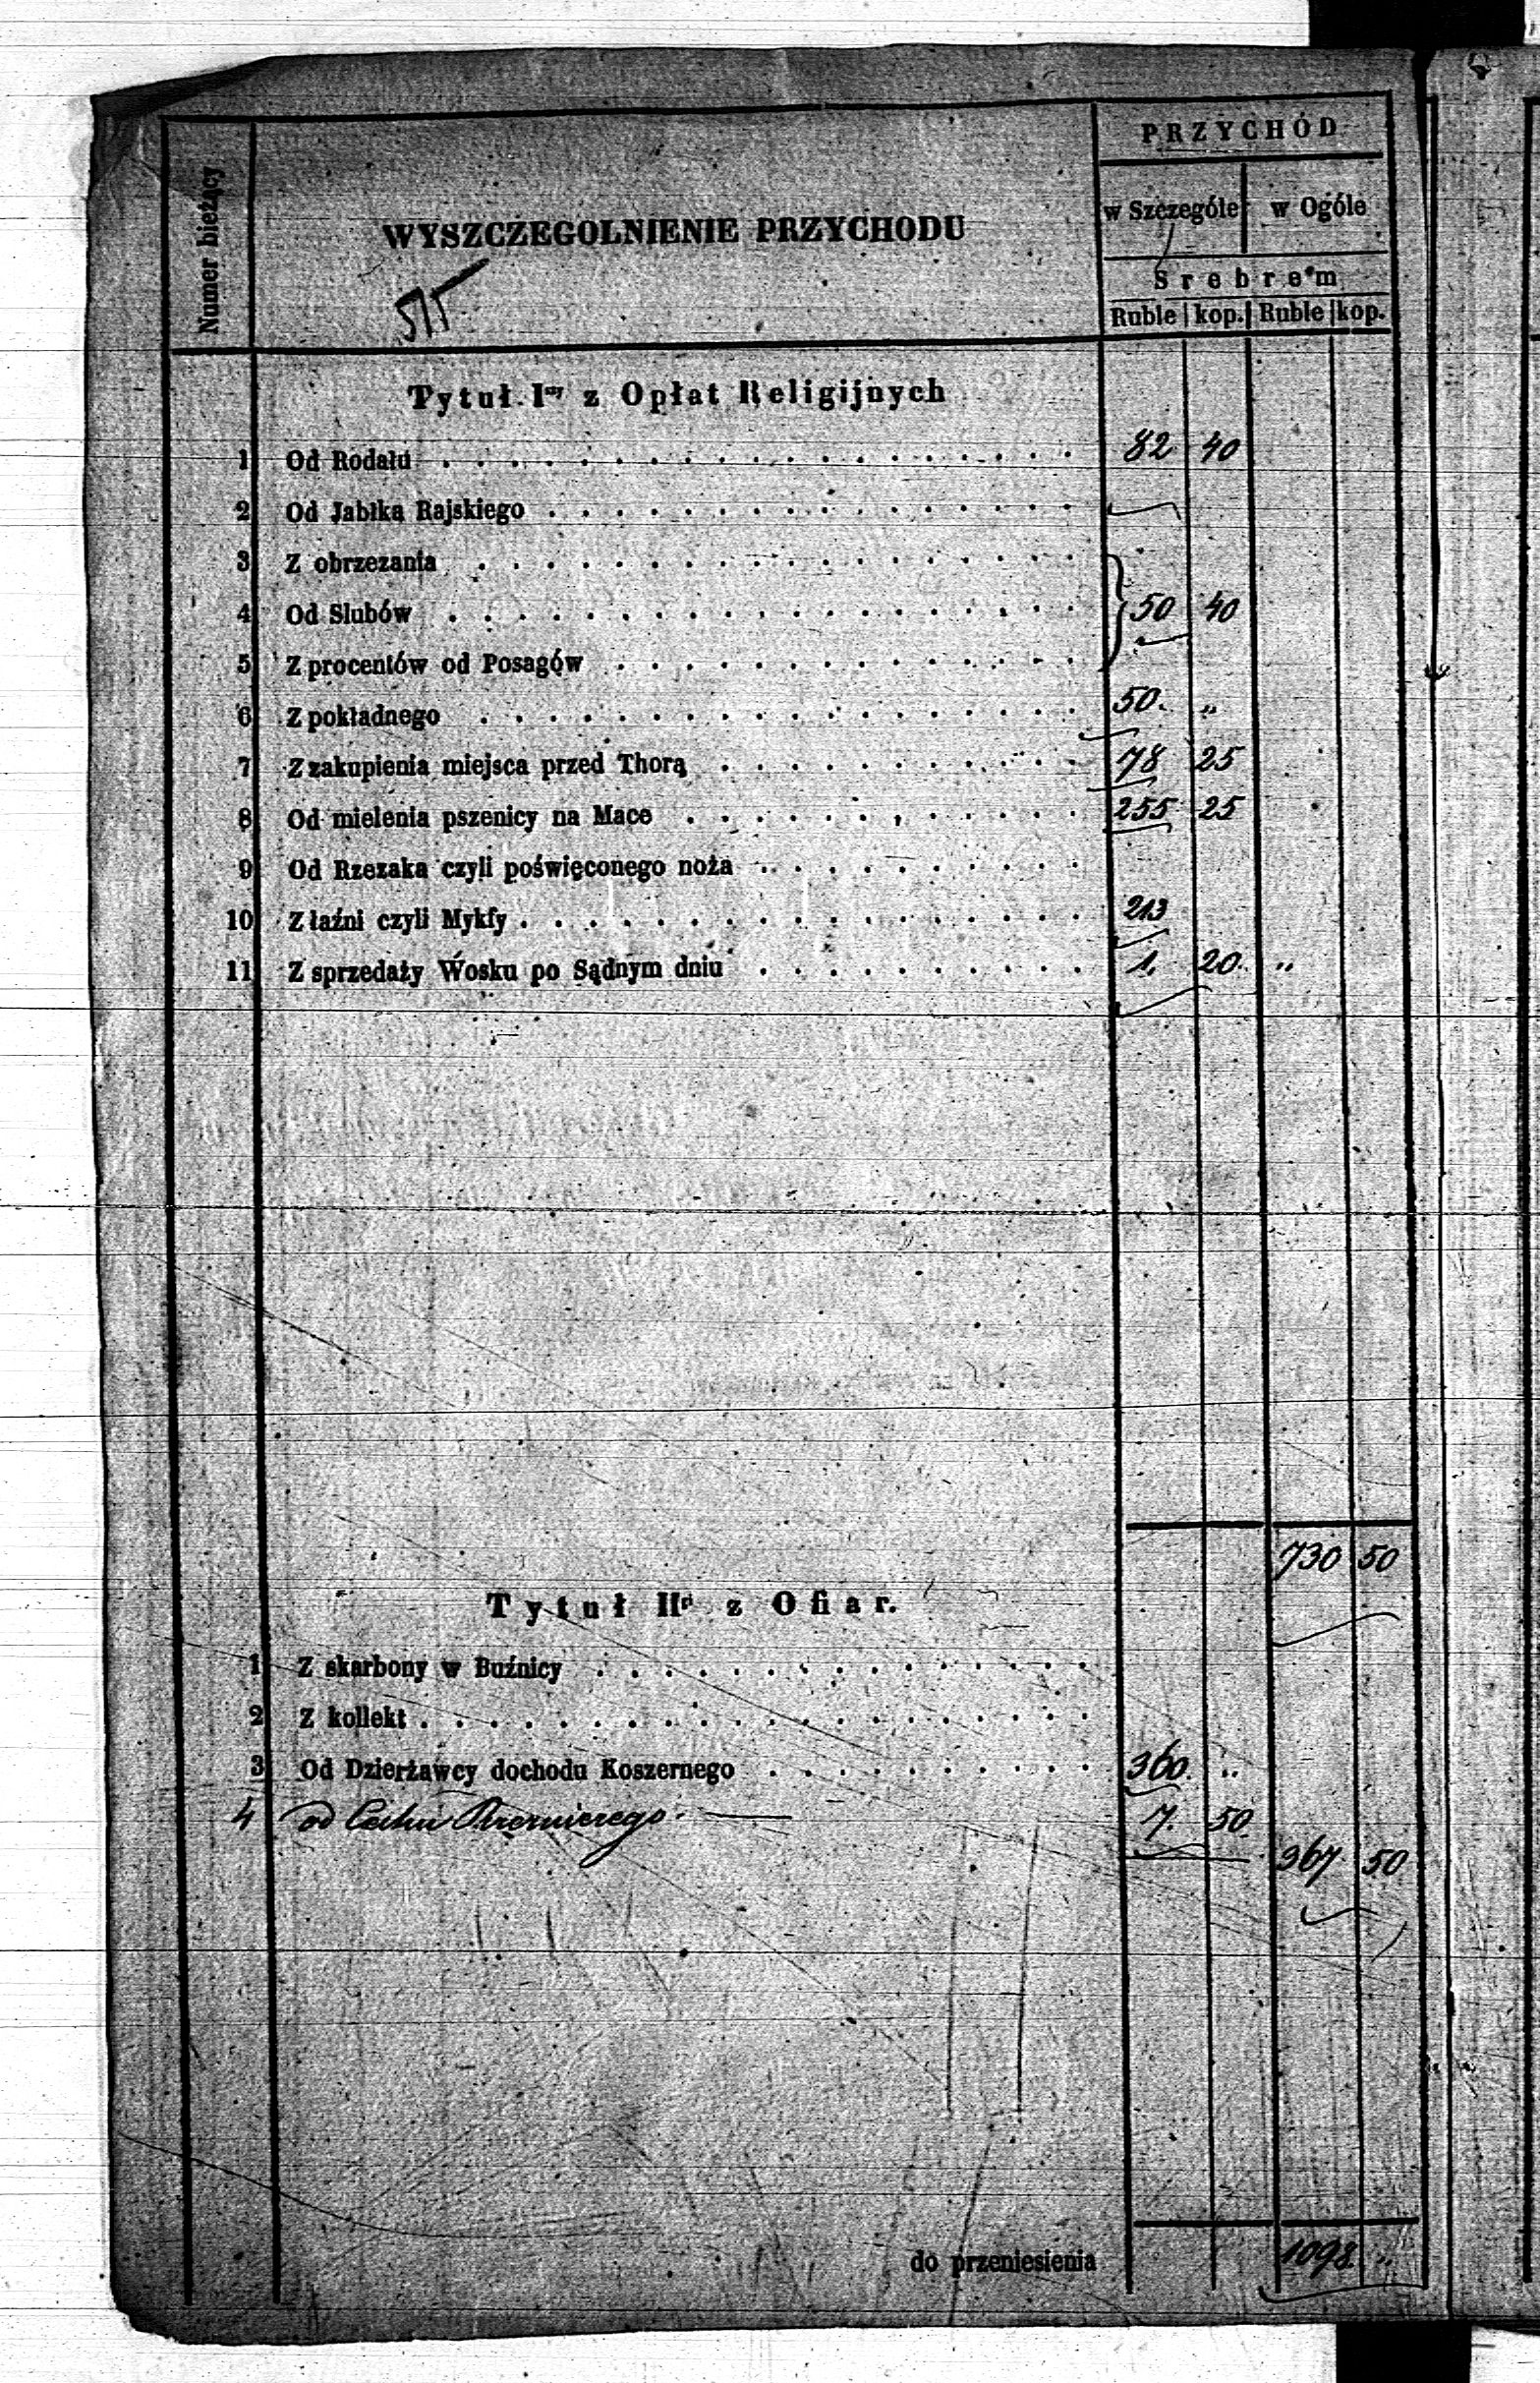 Numer bieżący
WYSZCZEGOLNIENIE PRZYCHODU
PRZYCHÓD
w Szczególe w Ogóle
Srebrem
Ruble kop. Ruble kop.
515
Tytuł Iszy z Opłat Religijnych
1 Od Rodału 82 40
2 Od Jabłka Rajskiego
3 Z obrzezania
4 Od Slubów 50 40
5 Z procentów od Posagów
6 Z pokładnego 50. „
7 Z zakupienia miejsca przed Thorą 78 25
8 Od mielenia pszenicy na Mace 255 25
9 Od Rzezaka czyli poświęconego noża
10 Z łaźni czyli Mykfy 213
11 Z sprzedaży Wosku po Sądnym dniu 1. 20. „
730 50
Tytuł IIgi z Ofiar.
1 Z skarbony w Buźnicy
2 Z kollekt
3 Od Dzierżawcy dochodu Koszernego 360. „
4 od Cechu 7. 50.
367 50
do przeniesienia 1098. „